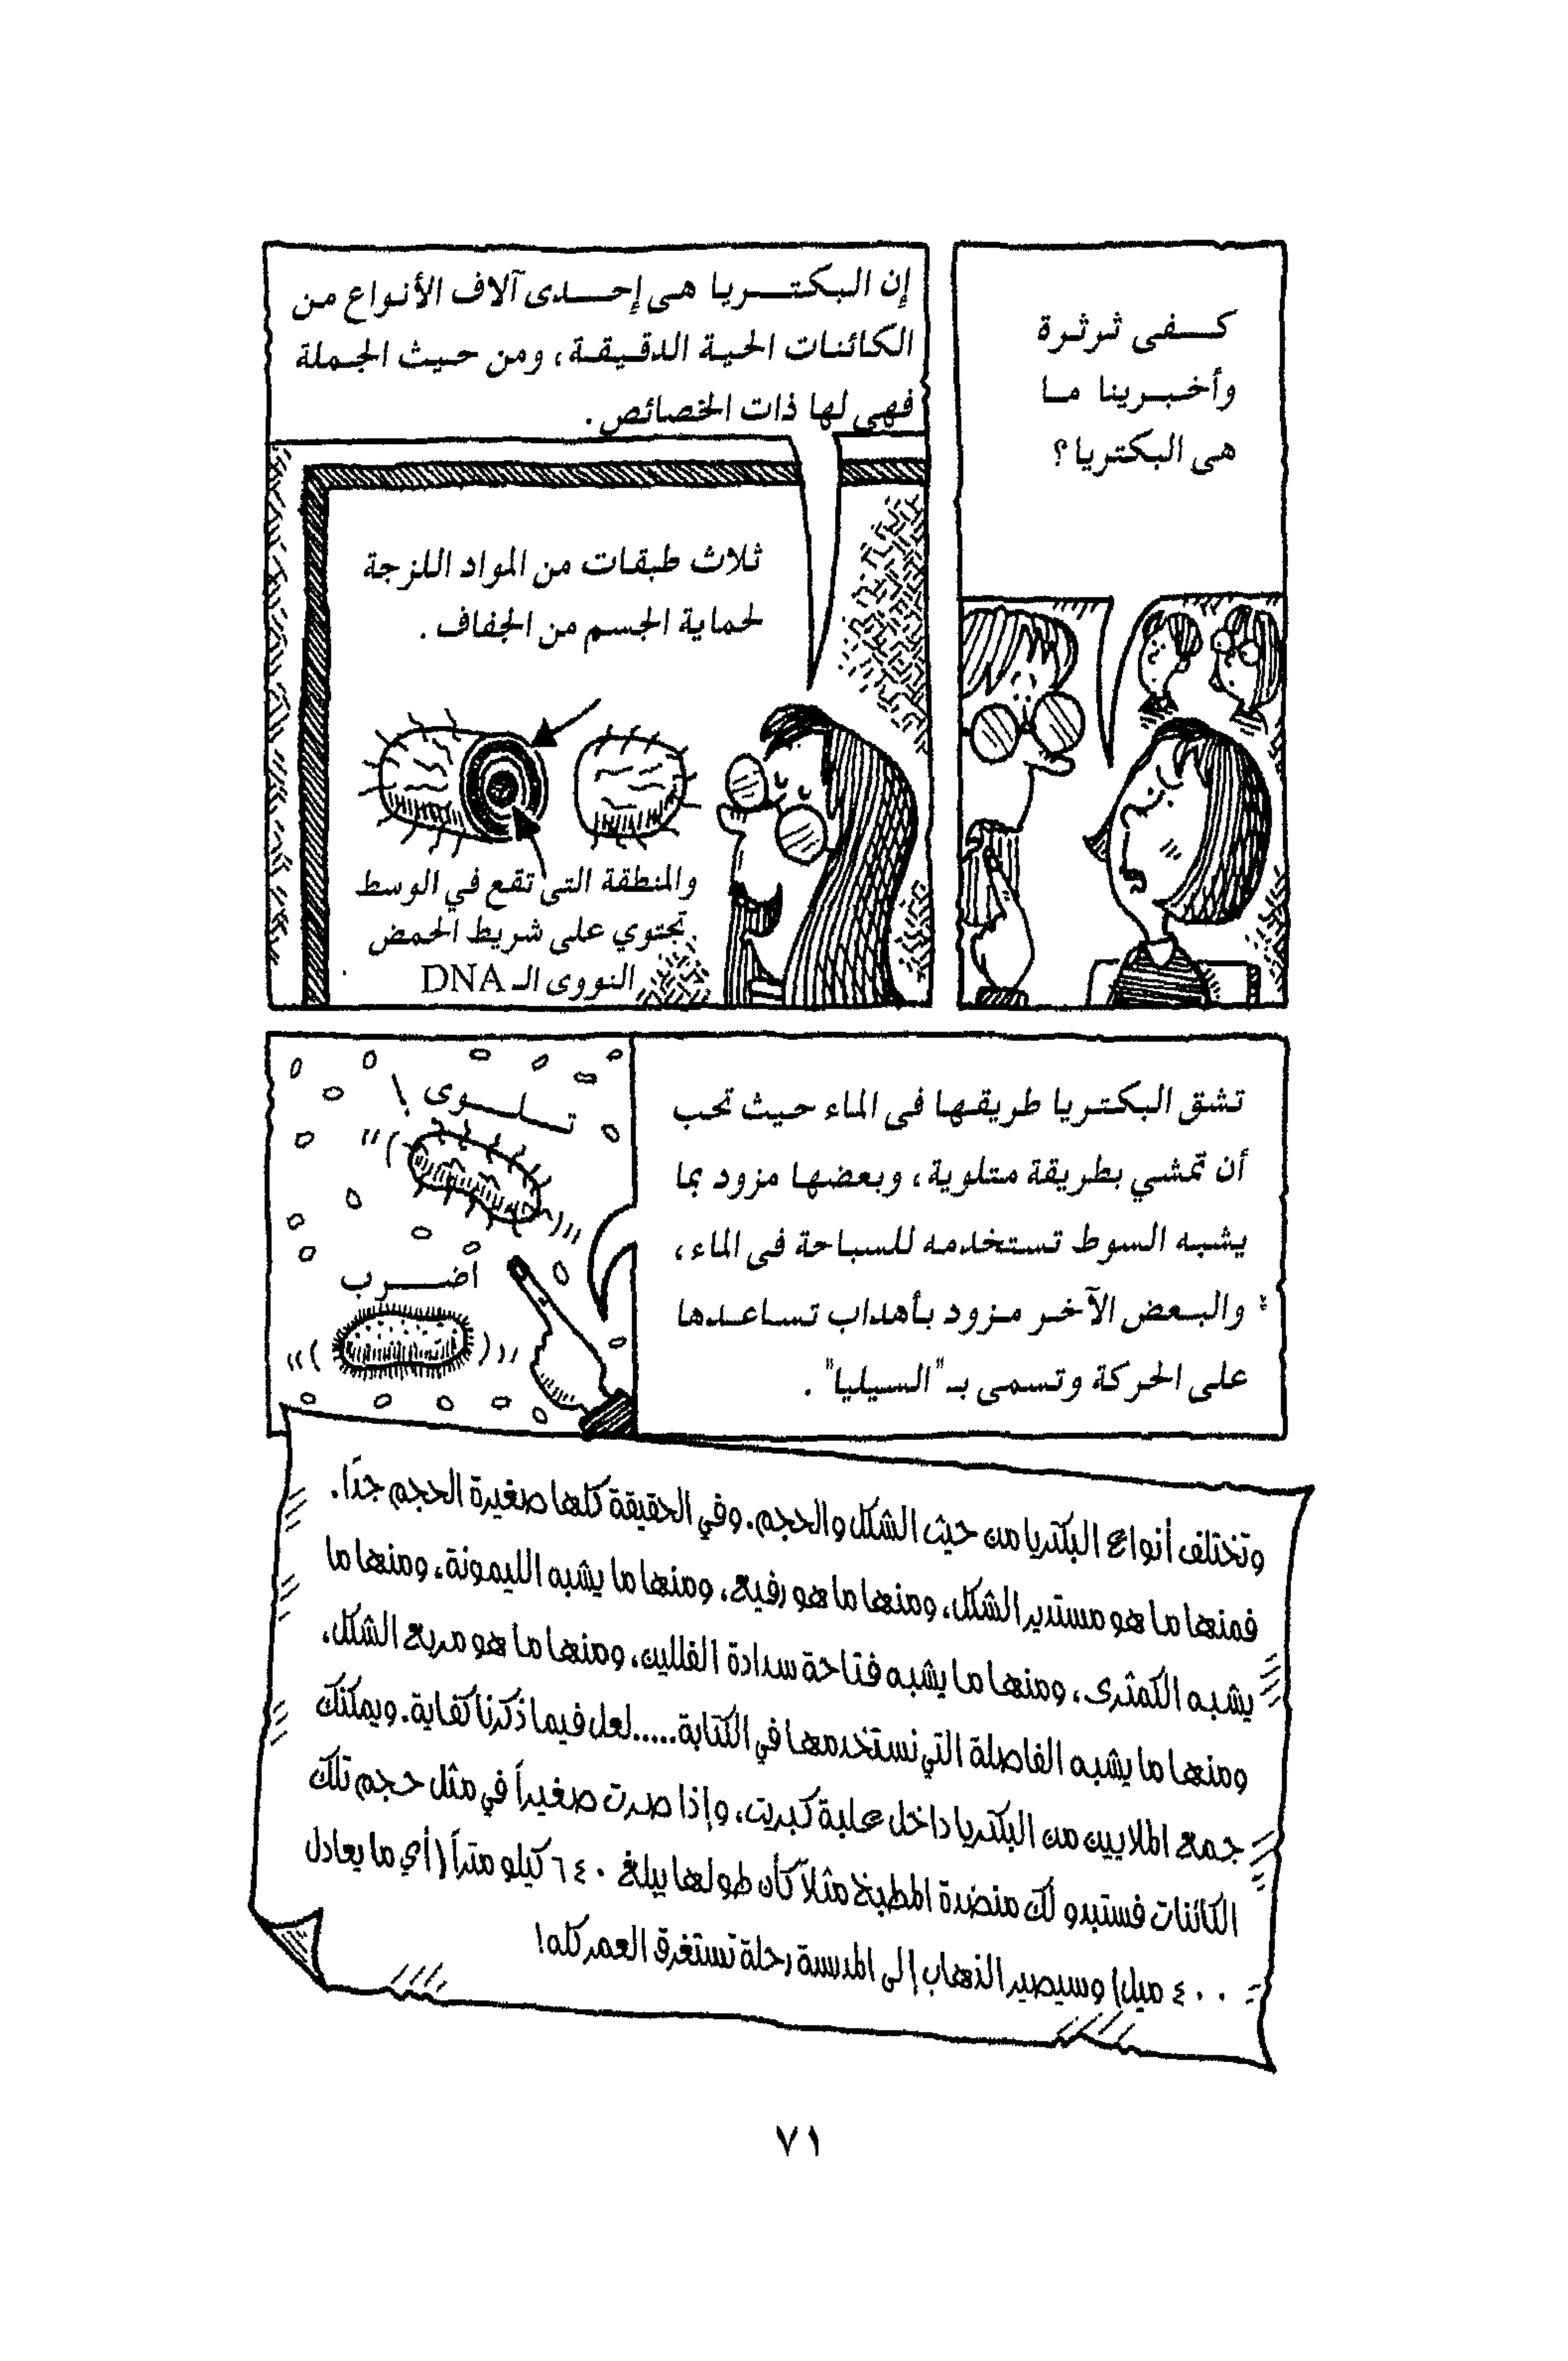 كفى ثرثرة
وأخبرينا ما
هى البكتريا؟
إن البكتريا هى إحدى آلاف الأنواع من
الكائنات الحية الدقيقة، ومن حيث الجملة
فهى لها ذات الخصائص.
ثلاث طبقات من المواد اللزجة
لحماية الجسم من الجفاف.
والمنطقة التى تقع في الوسط
تحتوي على شريط الحمض
النووى الـ DNA
تشق البكتريا طريقها فى الماء حيث تحب
أن تمشي بطريقة متلوية، وبعضها مزود بما
يشبه السوط تستخدمه للسباحة فى الماء،
والبعض الآخر مزود بأهداب تساعدها
على الحركة وتسمى بـ"السيليا".
تلوى!
اضرب
وتختلف أنواع البكتريا من حيث الشكل والحجم. وفي الحقيقة كلها صغيرة الحجم جدًا.
فمنها ما هو مستدير الشكل، ومنها ما هو رفيع، ومنها ما يشبه الليمونة، ومنها ما
يشبه الكمثرى، ومنها ما يشبه فتاحة سدادة الفللين، ومنها ما هو مربع الشكل،
ومنها ما يشبه الفاصلة التي نستخدمها في الكتابة.....لعل فيما ذكرنا كفاية. ويمكنك
جمع الملايين من البكتريا داخل علبة كبريت، وإذا صرت صغيراً في مثل حجم تلك
الكائنات فستبدو لك منضدة المطبخ مثلاً كأن طولها يبلغ ٦٤٠ كيلو متراً (أي ما يعادل
٤٠٠ ميل) وسيصير الذهاب إلى المدرسة رحلة تستغرق العمر كله!
٧١